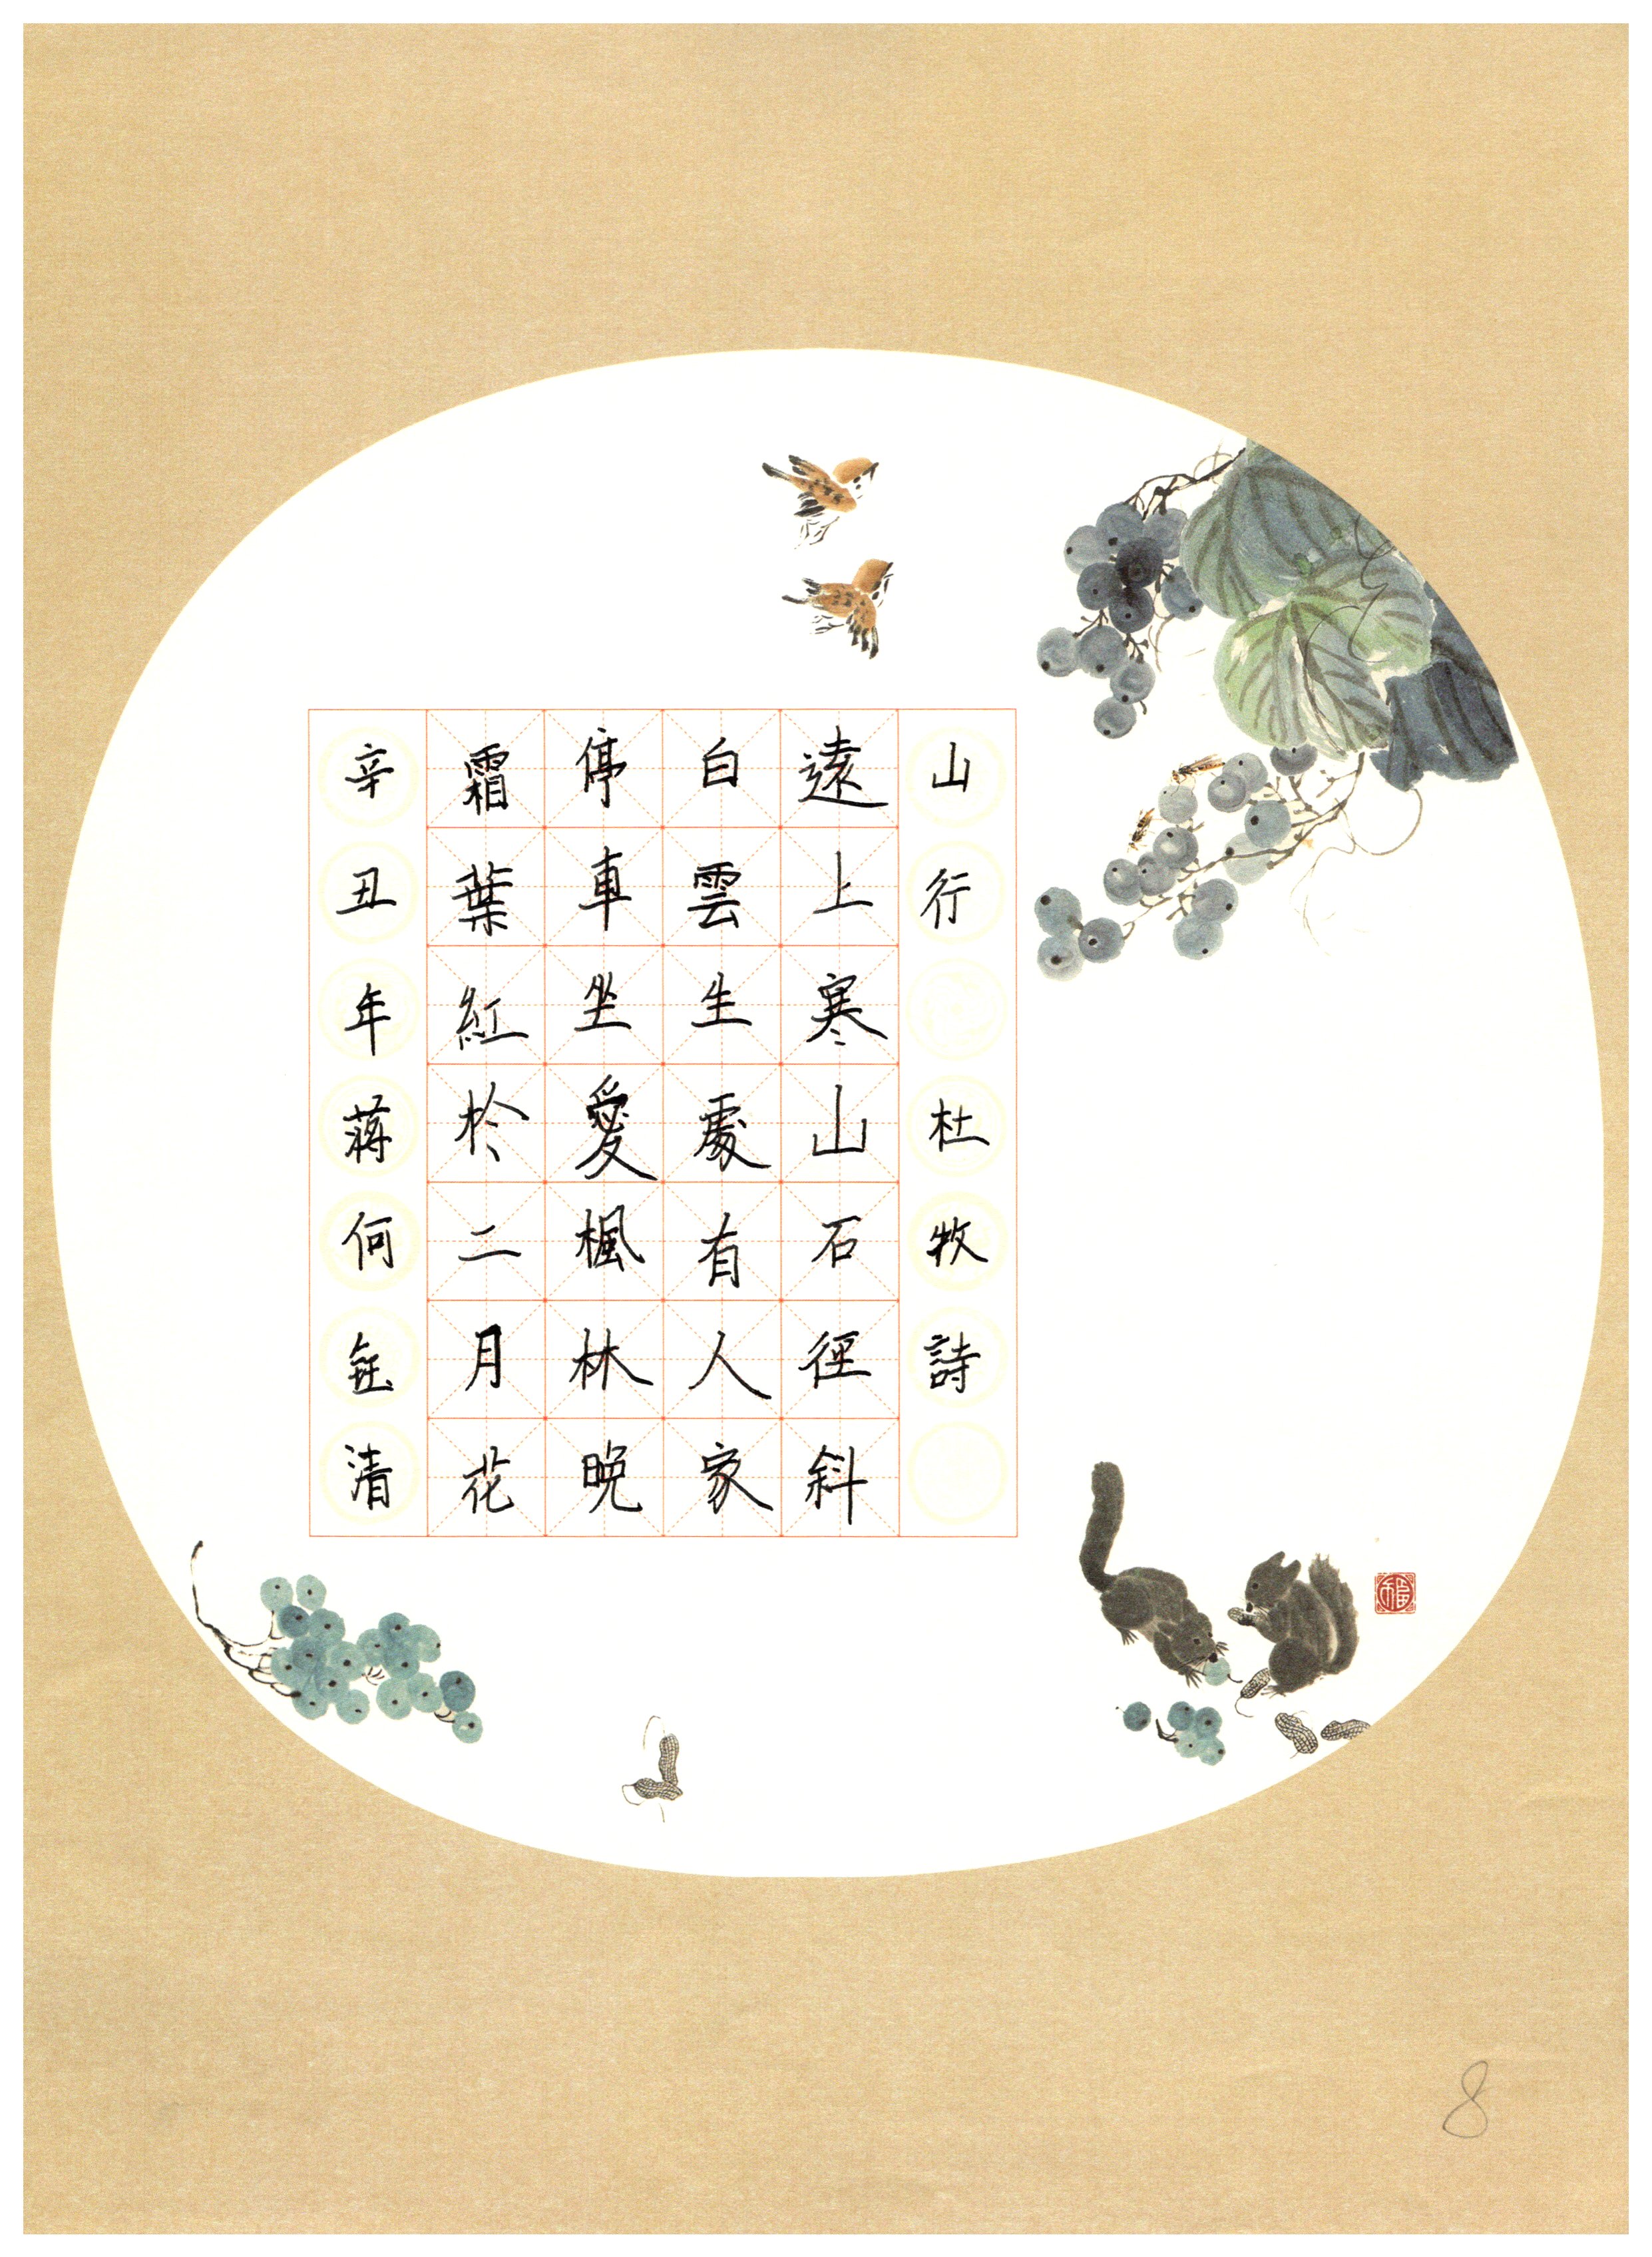 山行 杜牧詩
遠上寒山石徑斜
白雲生處有人家
停車坐愛楓林晚
霜葉紅於二月花
辛丑年蔣何清
福
8